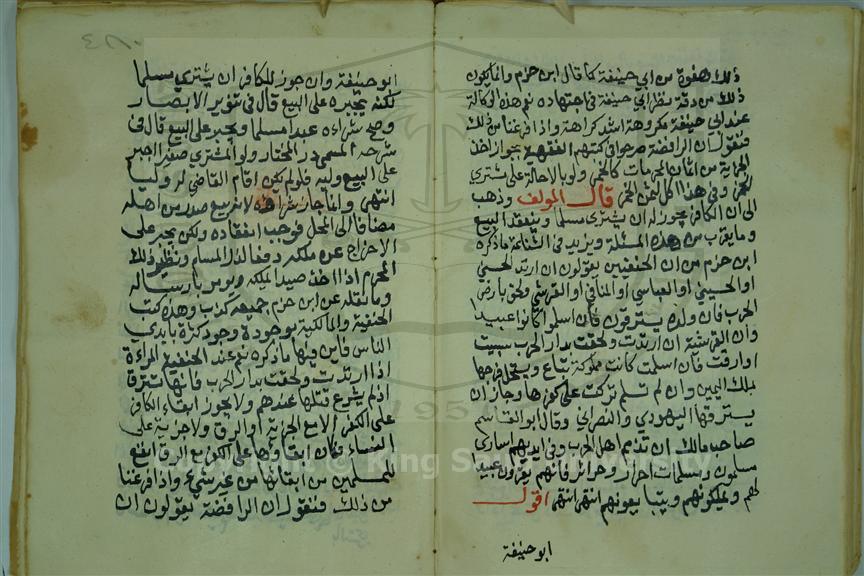 ذلك هفوة من ابي حنيفة كما قال ابن حزم وانما يكون
ذلك من دقة نظر ابي حنيفة في اجتهاده نعم هذه الوكالة
عند ابي حنيفة مكروهة اشد كراهة واذا فرغنا من ذلك
فنقول ان الرافضة صرحوا في كتبهم الفقهية بجواز اخذ
الجزية من اثمان المحرمات كالخمر ولو بالاحالة على مشتري
الخمر وفي هذا اكل لثمن الخمر قال المولف وذهب
الى ان الكافر يجوز له ان يشتري مسلما وينعقد البيع
وما يقرب من هذه المسئلة ويزيد في الشناعة ما ذكره
ابن حزم من ان الحنفيين يقولون ان ارتد الحسني
او الحسيني او العباسي او المنافي او القرشي ولحق بارض
الحرب فان ولده يسترقون فان اسلموا كانوا عبيدا
وان القرشية ان ارتدت ولحقت بدار الحرب سبيت
او ارقت فان اسلمت كانت مملوكة تباع ويستحل فرجها
بملك اليمين وان لم تسلم تركت على كفرها وجاز ان
يسترقها اليهودي والنصراني وقال ابو القاسم
صاحب مالك ان تذمم اهل الحرب وفي ايديهم اسارى
مسلمون ومسلمات احرار وحرائر فانهم يقرون عبيدا
لهم ويملكونهم ويتبايعونهم انتهى انتهى اقول
ابو حنيفة
ابو حنيفة وان جوز للكافر ان يشتري مسلما
لكنه يجبره على البيع قال في تنوير الابصار
وصح شراءه عبدا مسلما ويجبر على البيع قال في
شرحه المسمى در المختار ولو المشتري صغير اجبر
على البيع وليه فلو لم يكن اقام القاضي له وليا
انتهى وانما جاز شراءه لانه بيع صدر من اهله
مضافا الى المحل فوجب انعقاده ولكن يجبر على
الاخراج عن ملكه دفعا لذل المسلم ونظير ذلك
المحرم اذا اخذ صيدا يملكه ويومر بارساله
وما نقله عن ابن حزم جميعه كذب وهذه كتب
الحنفية والمالكية موجودة وجود كثرة بايدي
الناس فاين فيها ما ذكره نعم عند الحنفية المراءة
اذا ارتدت ولحقت بدار الحرب فانها تسترق
اذ لم يشرع قتلها عندهم ولا يجوز ابقاء الكافر
على الكفر الا مع الجزية او الرق ولا جزية على
النساء فكان ابقاؤها على الكفر مع الرق انفع
للمسلمين من ابقائها من غير شيء واذا فرغنا
من ذلك فنقول ان الرافضة يقولون ان
Copyright © King Saud University
1957